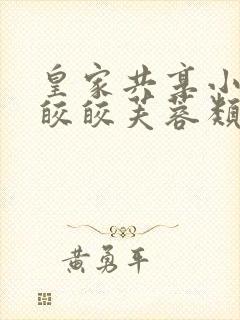 皇家共享小
皎皎芙蓉颜
黄勇平